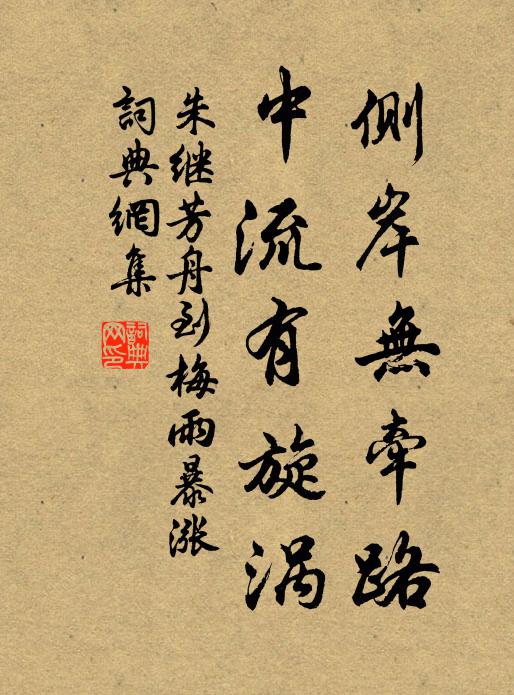 側岸無牽路
中流有旋涡
朱继芳舟到梅雨暴漲
詞典網集
詞典网印